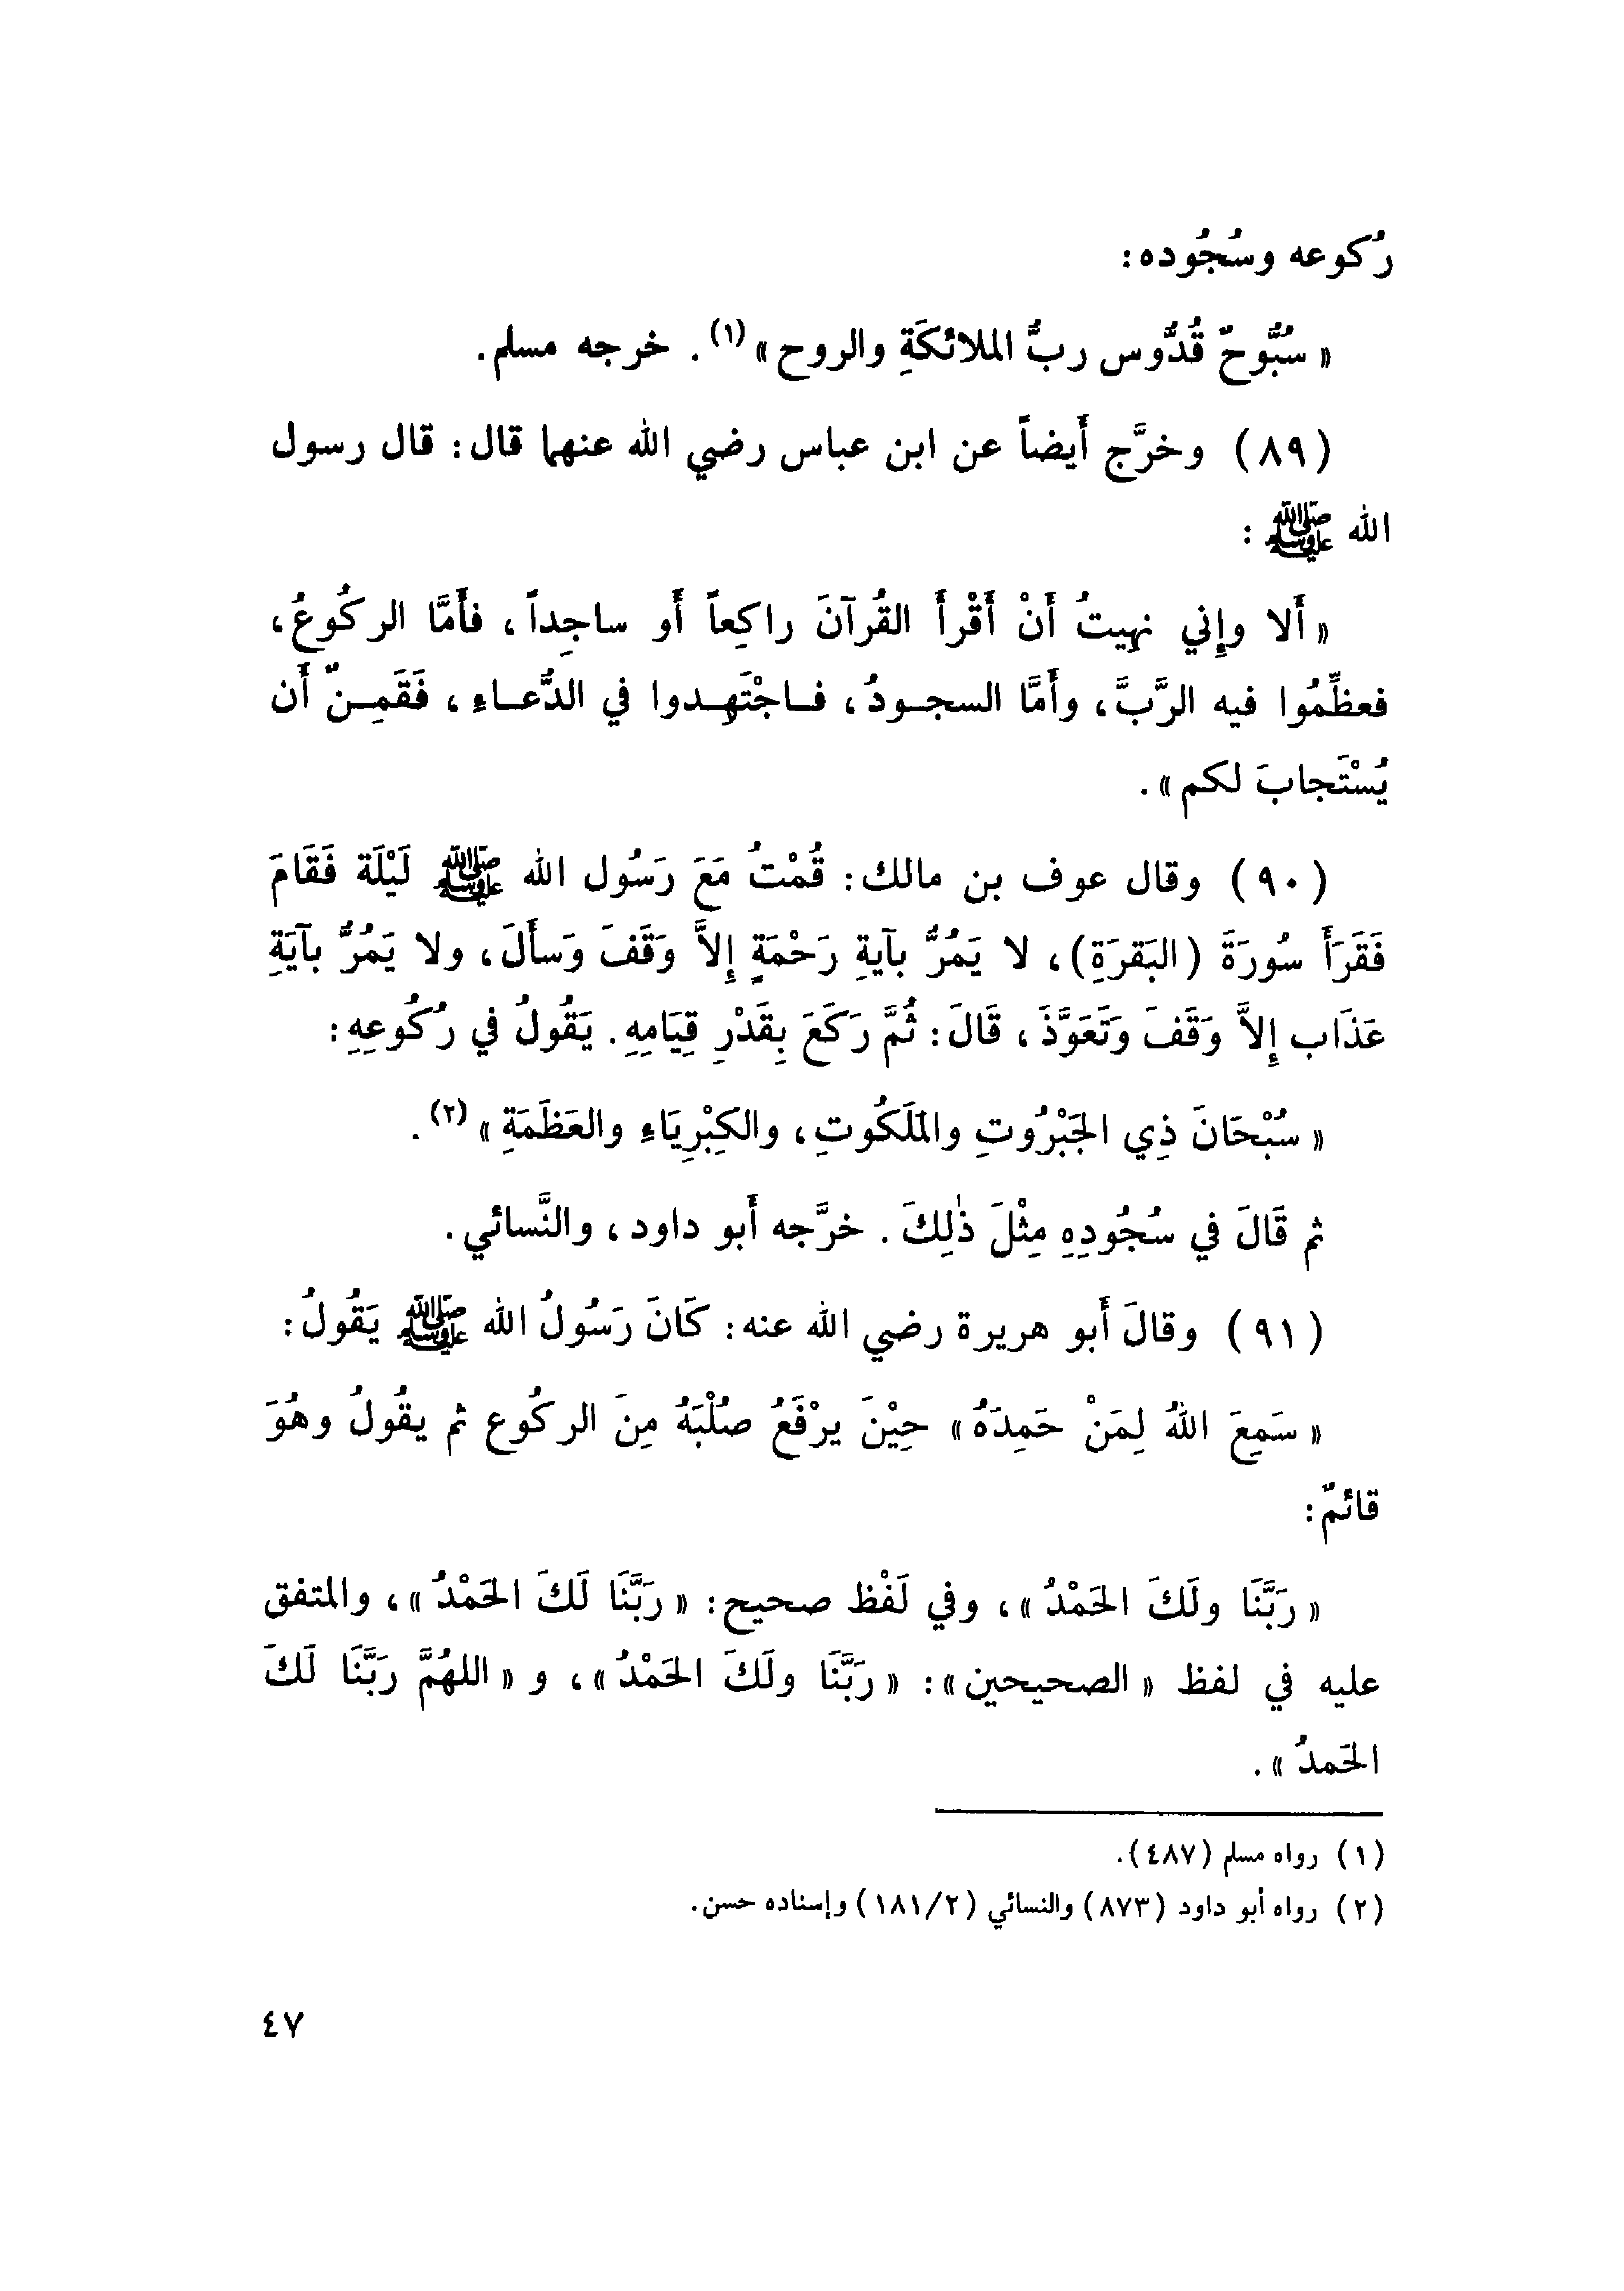 رُكوعه وسُجُوده:
« سُبُّوحٌ قُدُّوس ربُّ الملائكَةِ والروح » (١) . خرجه مسلم.
(٨٩) وخرَّج أَيضاً عن ابن عباس رضي الله عنهما قال: قال رسول
الله ﷺ :
« أَلا وإِني نهِيتُ أَنْ أَقْرأَ القُرآنَ راكِعاً أَو ساجِداً، فأَمَّا الركُوعُ،
فعظِّمُوا فيه الرَّبَّ، وأَمَّا السجـودُ، فـاجْتَهِـدوا في الدُّعـاءِ، فَقَمِـنٌ أَن
يُسْتَجابَ لكم ».
(٩٠) وقال عوف بن مالك: قُمْتُ مَعَ رَسُول الله ﷺ لَيْلَة فَقَامَ
فَقَرَأَ سُورَةَ (البَقرَةِ)، لا يَمُرُّ بآيةِ رَحْمَةٍ إِلاَّ وَقَفَ وَسأَلَ، ولا يَمُرُّ بآيَةِ
عَذَاب إِلاَّ وَقَفَ وَتَعَوَّذَ، قَالَ: ثُمَّ رَكَعَ بِقَدْرِ قِيَامِهِ. يَقُولُ في رُكُوعِهِ:
« سُبْحَانَ ذِي الجَبْرُوتِ والمَلَكُوتِ، والكِبْرِيَاءِ والعَظَمَةِ » (٢) .
ثم قَالَ في سُجُودِهِ مِثْلَ ذٰلِكَ . خرَّجه أَبو داود، والنَّسائي.
(٩١) وقالَ أَبو هريرة رضي الله عنه: كَانَ رَسُولُ الله ﷺ يَقُولُ:
« سَمِعَ اللهُ لِمَنْ حَمِدَهُ » حِيْنَ يرْفَعُ صُلْبَهُ مِنَ الركُوع ثم يقُولُ وهُوَ
قائمٌ:
« رَبَّنَا ولَكَ الحَمْدُ »، وفي لَفْظ صحيح: « رَبَّنَا لَكَ الحَمْدُ »، والمتفق
عليه في لفظ « الصحيحين »: « رَبَّنَا ولَكَ الحَمْدُ »، و « اللهُمَّ رَبَّنَا لَكَ
الحَمدُ ».
(١) رواه مسلم (٤٨٧).
(٢) رواه أبو داود (٨٧٣) والنسائي (١٨١/٢) وإسناده حسن.
٤٧